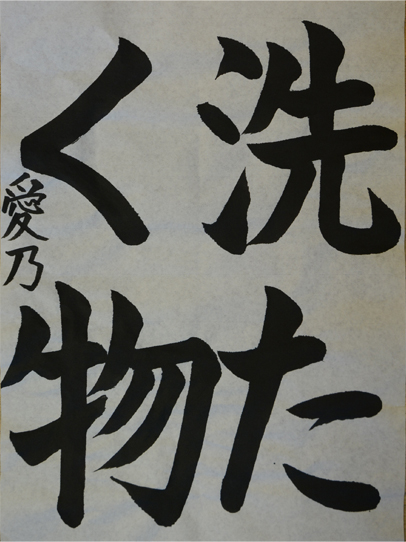 洗た
く物
愛乃